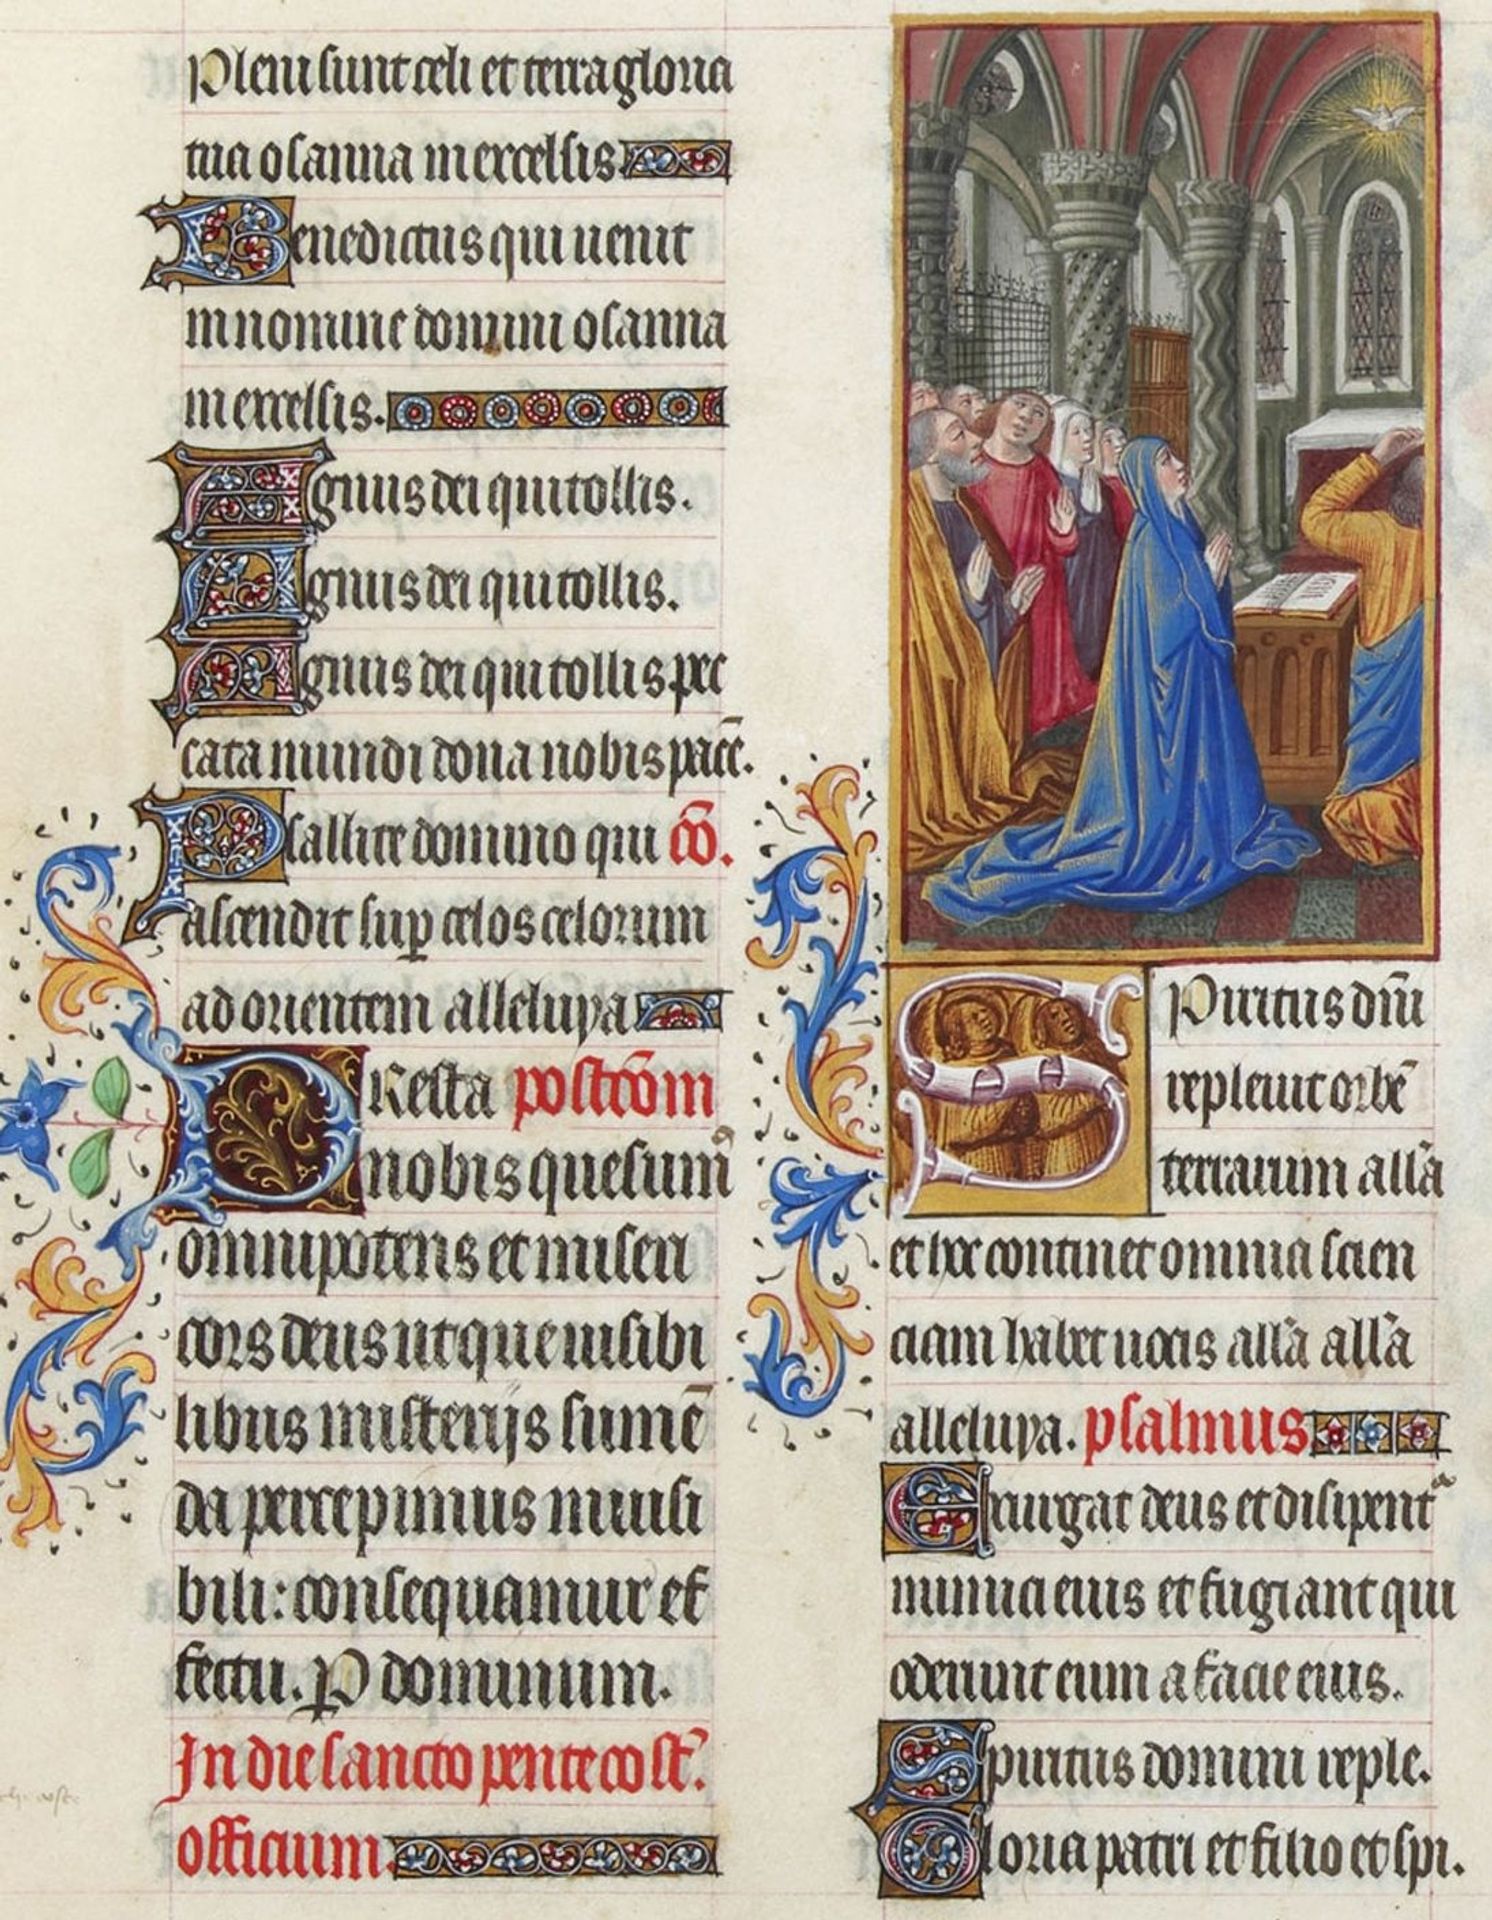 Pleni sunt celi et terra gloria
tua osanna in excelsis.
Benedictus qui uenit
in nomine domini osanna
in excelsis.
Agnus dei qui tollis.
Agnus dei qui tollis.
Agnus dei qui tollis pec
cata mundi dona nobis pacē.
Psallite domino qui cō.
ascendit suꝑ celos celorum
ad orientem alleluya
PResta postcōm
nobis quesumꝰ
omnipotens et miseri
cors deus ut que uisibi
libus misterijs sumē
da percepimus inuisi
bili: consequamur ef
fectu. P dominum.
In die sancto pentecost̄.
officium.
SPiritus dn̄i
repleuit orbē
terrarum all̄a
et hoc continet omnia scien
ciam habet uocis all̄a all̄a
alleluya. psalmus
Exurgat deus et disipentᷣ
inimici eius et fugiant qui
oderunt eum a facie eius.
Spiritus domini reple.
Gloria patri et filio et spi.